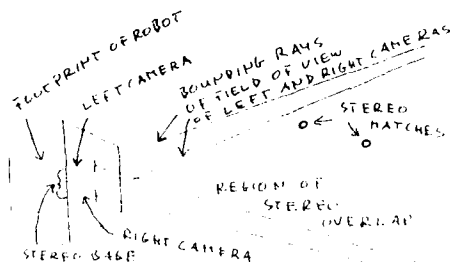 FOOTPRINT OF ROBOT
LEFT CAMERA
BOUNDING RAYS
OF FIELD OF VIEW
OF LEFT AND RIGHT CAMERAS
STEREO
MATCHES
REGION OF
STEREO
OVERLAP
STEREO BASE
RIGHT CAMERA